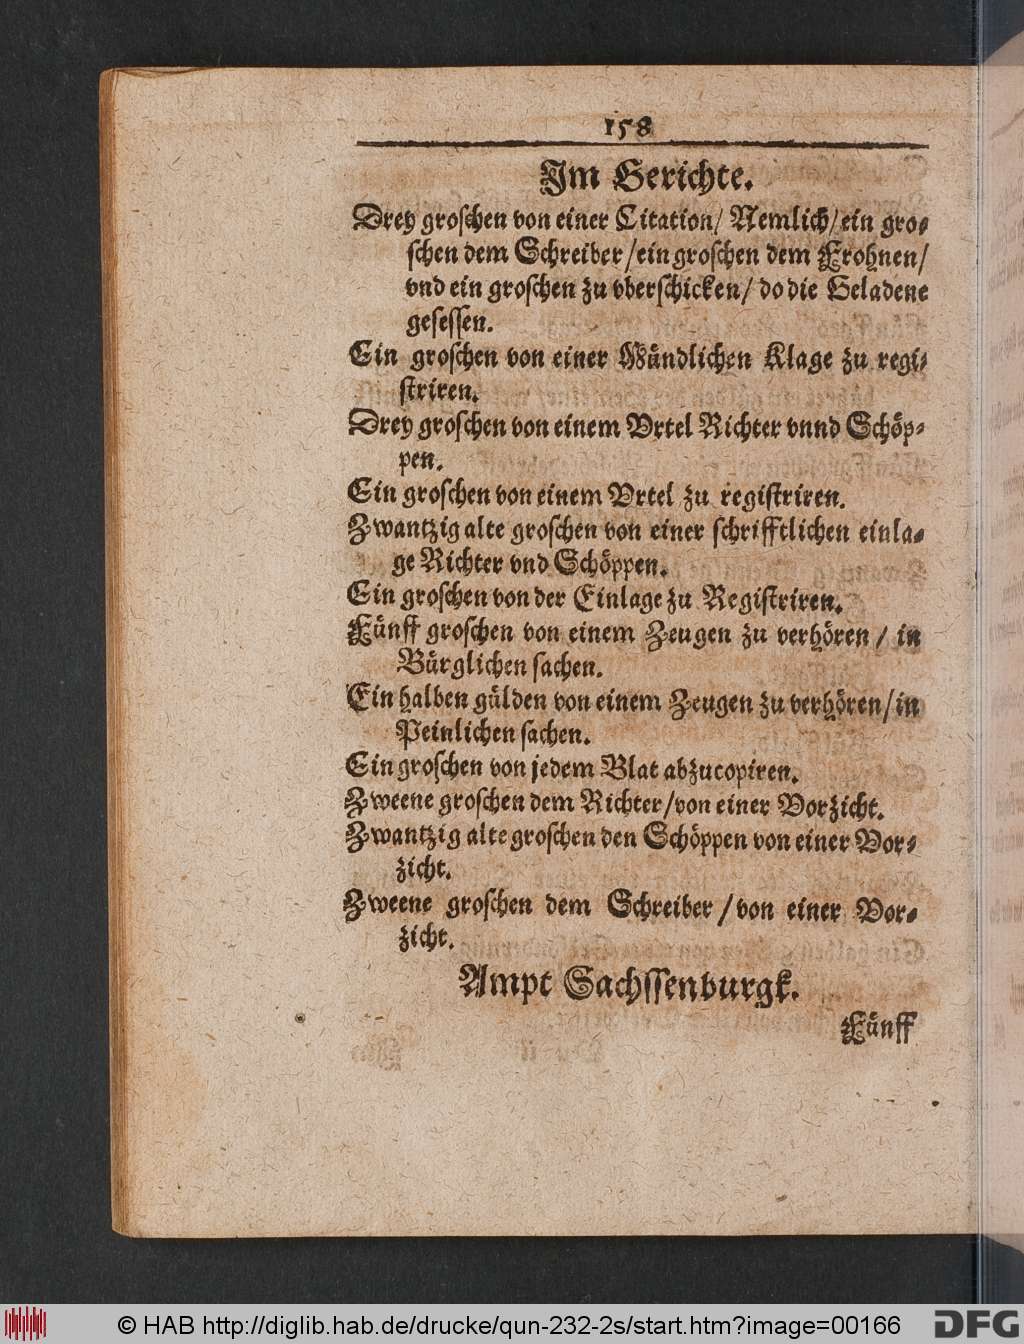 158
Im Gerichte.
Drey groschen von einer Citation/ Nemlich/ ein gro-
schen dem Schreiber/ ein groschen dem Frohnen/
vnd ein groschen zu vberschicken/ do die Geladene
gesessen.
Ein groschen von einer Mündlichen Klage zu regi-
striren.
Drey groschen von einem Vrtel Richter vnnd Schöp-
pen.
Ein groschen von einem Vrtel zu registriren.
Zwantzig alte groschen von einer schrifftlichen einla-
ge Richter vnd Schöppen.
Ein groschen von der Einlage zu Registriren.
Fünff groschen von einem Zeugen zu verhören/ in
Bürglichen sachen.
Ein halben gülden von einem Zeugen zu verhören/ in
Peinlichen sachen.
Ein groschen von jedem Blat abzucopiren.
Zweene groschen dem Richter/ von einer Vorzicht.
Zwantzig alte groschen den Schöppen von einer Vor-
zicht.
Zweene groschen dem Schreiber/ von einer Vor-
zicht.
Ampt Sachssenburgk.
Fünff
© HAB http://diglib.hab.de/drucke/qun-232-2s/start.htm?image=00166
DFG